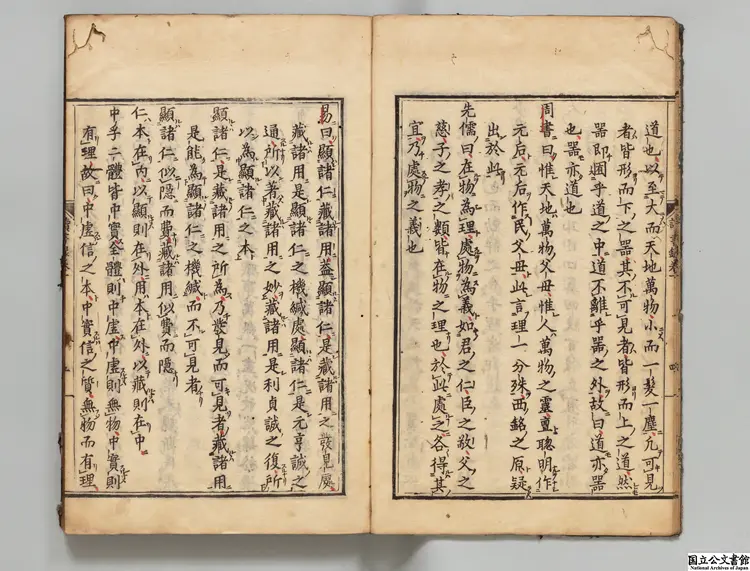 道也以至大而天地萬物小而一髮一塵凡可見
者皆形而下之器其不可見者皆形而上之道然
器即囿乎道之中道不離乎器之外故曰道亦器
也器亦道也
周書曰惟天地萬物父母惟人萬物之靈亶聰明作
元后元后作民父母此言理一分殊西銘之原疑
出於此
先儒曰在物為理處物為義如君之仁臣之敬父之
慈子之孝之類皆在物之理也於此處之各得其
宜乃處物之義也
易曰顯諸仁藏諸用蓋顯諸仁是藏諸用之發見處
藏諸用是顯諸仁之機緘處顯諸仁是元亨誠之
通所以著藏諸用之妙藏諸用是利貞誠之復所
以為顯諸仁之本
顯諸仁是藏諸用之所為乃發見而可見者藏諸用
是能為顯諸仁之機緘而不可見者
顯諸仁似隱而費藏諸用似費而隱
仁本在內以顯則在外用本在外以藏則在中
中孚二體皆中實全體則中虛中虛則無物中實則
有理故曰中虛信之本中實信之質無物而有理
国立公文書館
National Archives of Japan